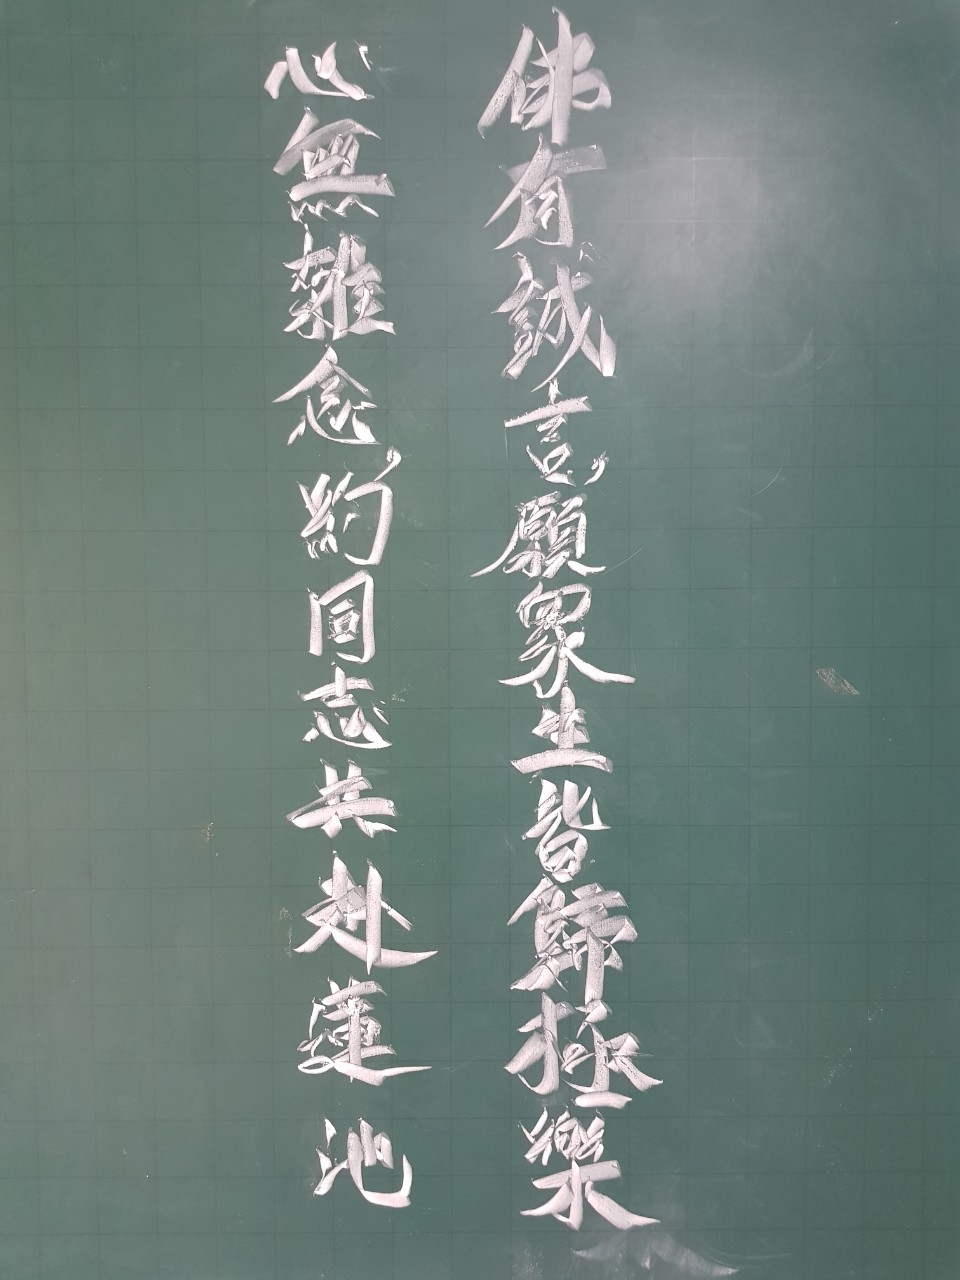 佛有誠言願眾生皆歸極樂
心無雜念約同志共赴蓮池